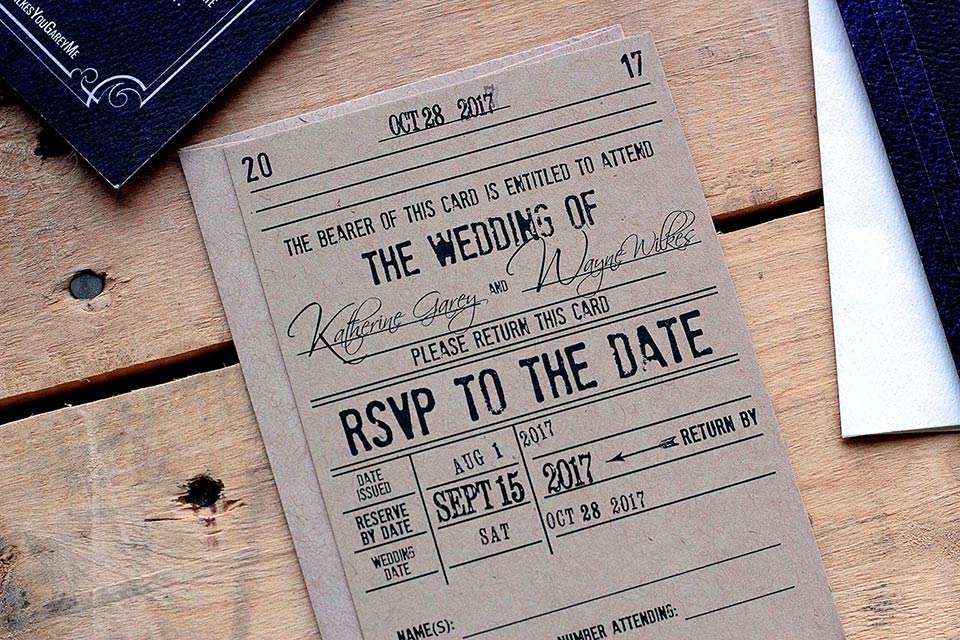 ilkesYouGareyMe
17
OCT 28 2017
20
THE BEARER OF THIS CARD IS ENTITLED TO ATTEND
THE WEDDING OF
Katherine Garey AND Wayne Wilkes
PLEASE RETURN THIS CARD
RSVP TO THE DATE
DATE ISSUED AUG 1 2017
RESERVE BY DATE SEPT 15 2017 RETURN BY
WEDDING DATE SAT OCT 28 2017
NAME(S):
NUMBER ATTENDING: